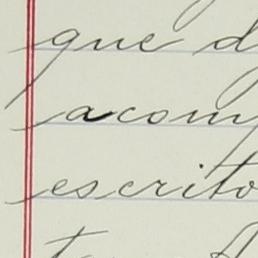 que d
acom
escrito